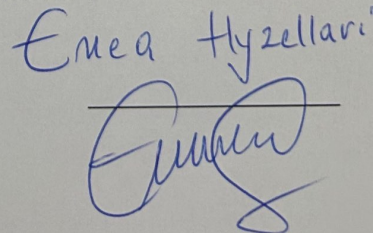 Enea Hyzellari